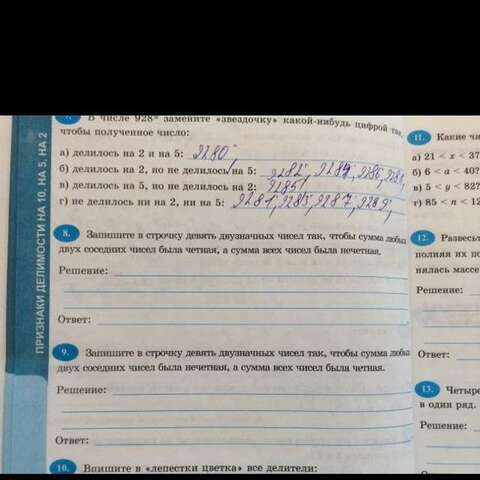 ПРИЗНАКИ ДЕЛИМОСТИ НА 10, НА 5, НА 2
В числе 928* замените «звездочку» какой-нибудь цифрой так,
чтобы полученное число:
а) делилось на 2 и на 5: 9280,
б) делилось на 2, но не делилось на 5: 9282, 9284, 9286, 9288,
в) делилось на 5, но не делилось на 2: 9285,
г) не делилось ни на 2, ни на 5: 9281, 9283, 9287, 9289,
8. Запишите в строчку девять двузначных чисел так, чтобы сумма любых
двух соседних чисел была четная, а сумма всех чисел была нечетная.
Решение:
Ответ:
9. Запишите в строчку девять двузначных чисел так, чтобы сумма любых
двух соседних чисел была нечетная, а сумма всех чисел была четная.
Решение:
Ответ:
10. Впишите в «лепестки цветка» все делители:
11. Какие
а) 21 < x < 37
б) 6 < a < 40?
в) 5 < y < 82?
г) 85 < n < 12
12.
полняя их
массе
Решение:
Ответ:
13.
в один ряд.
Решение:
Ответ: